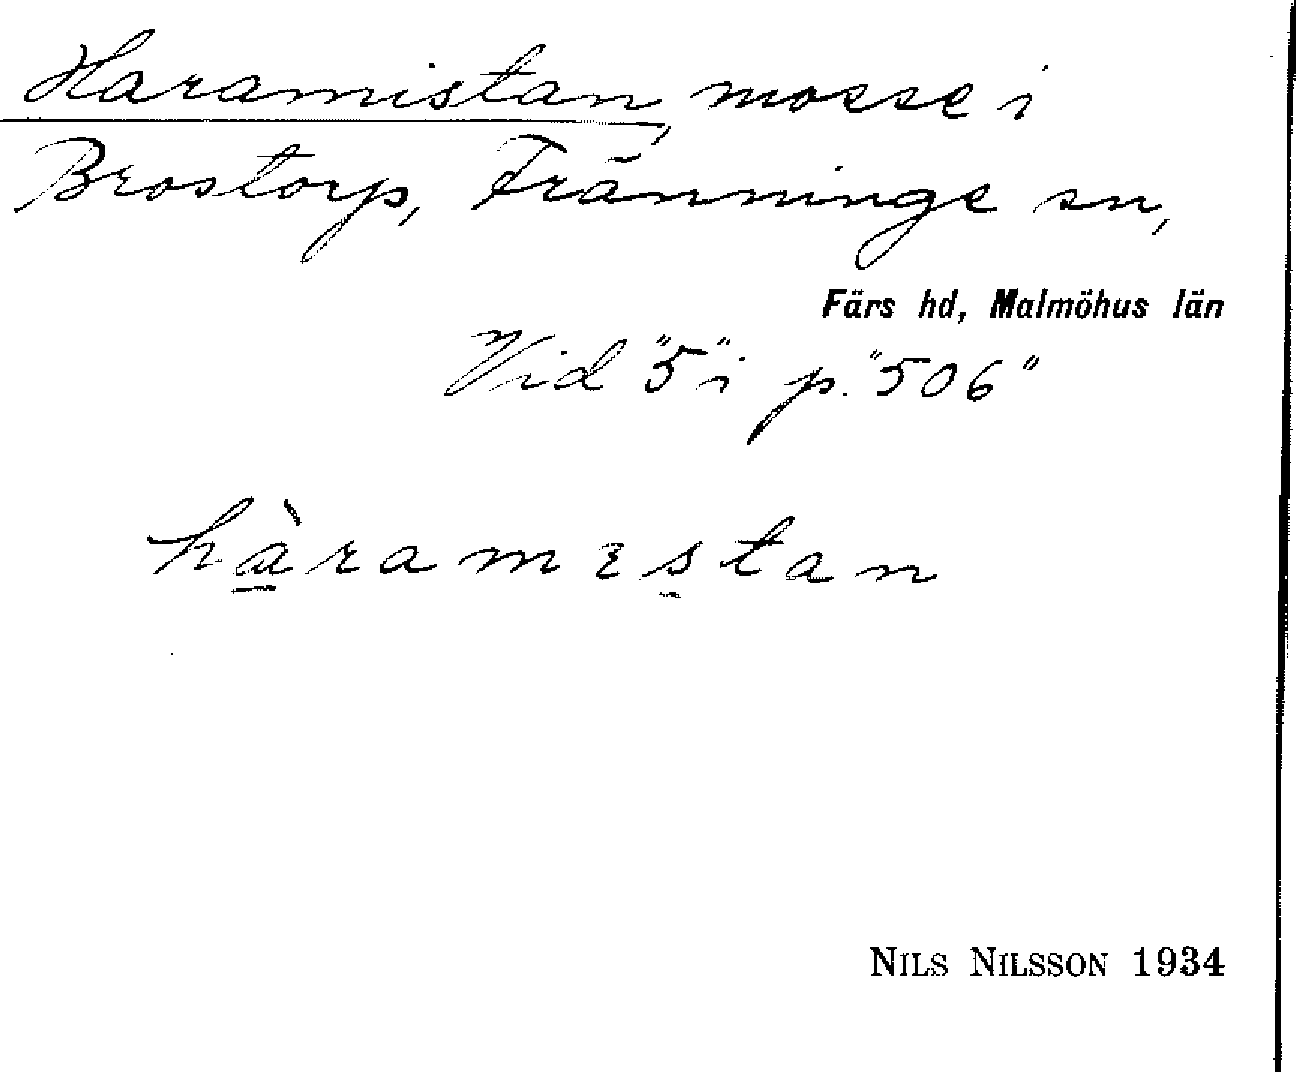 Haramistan, mosse i
Brostorp, Fränninge sn,
Färs hd, Malmöhus län
Vid "5" i p. "506"
hàramɛstan
NILS NILSSON 1934